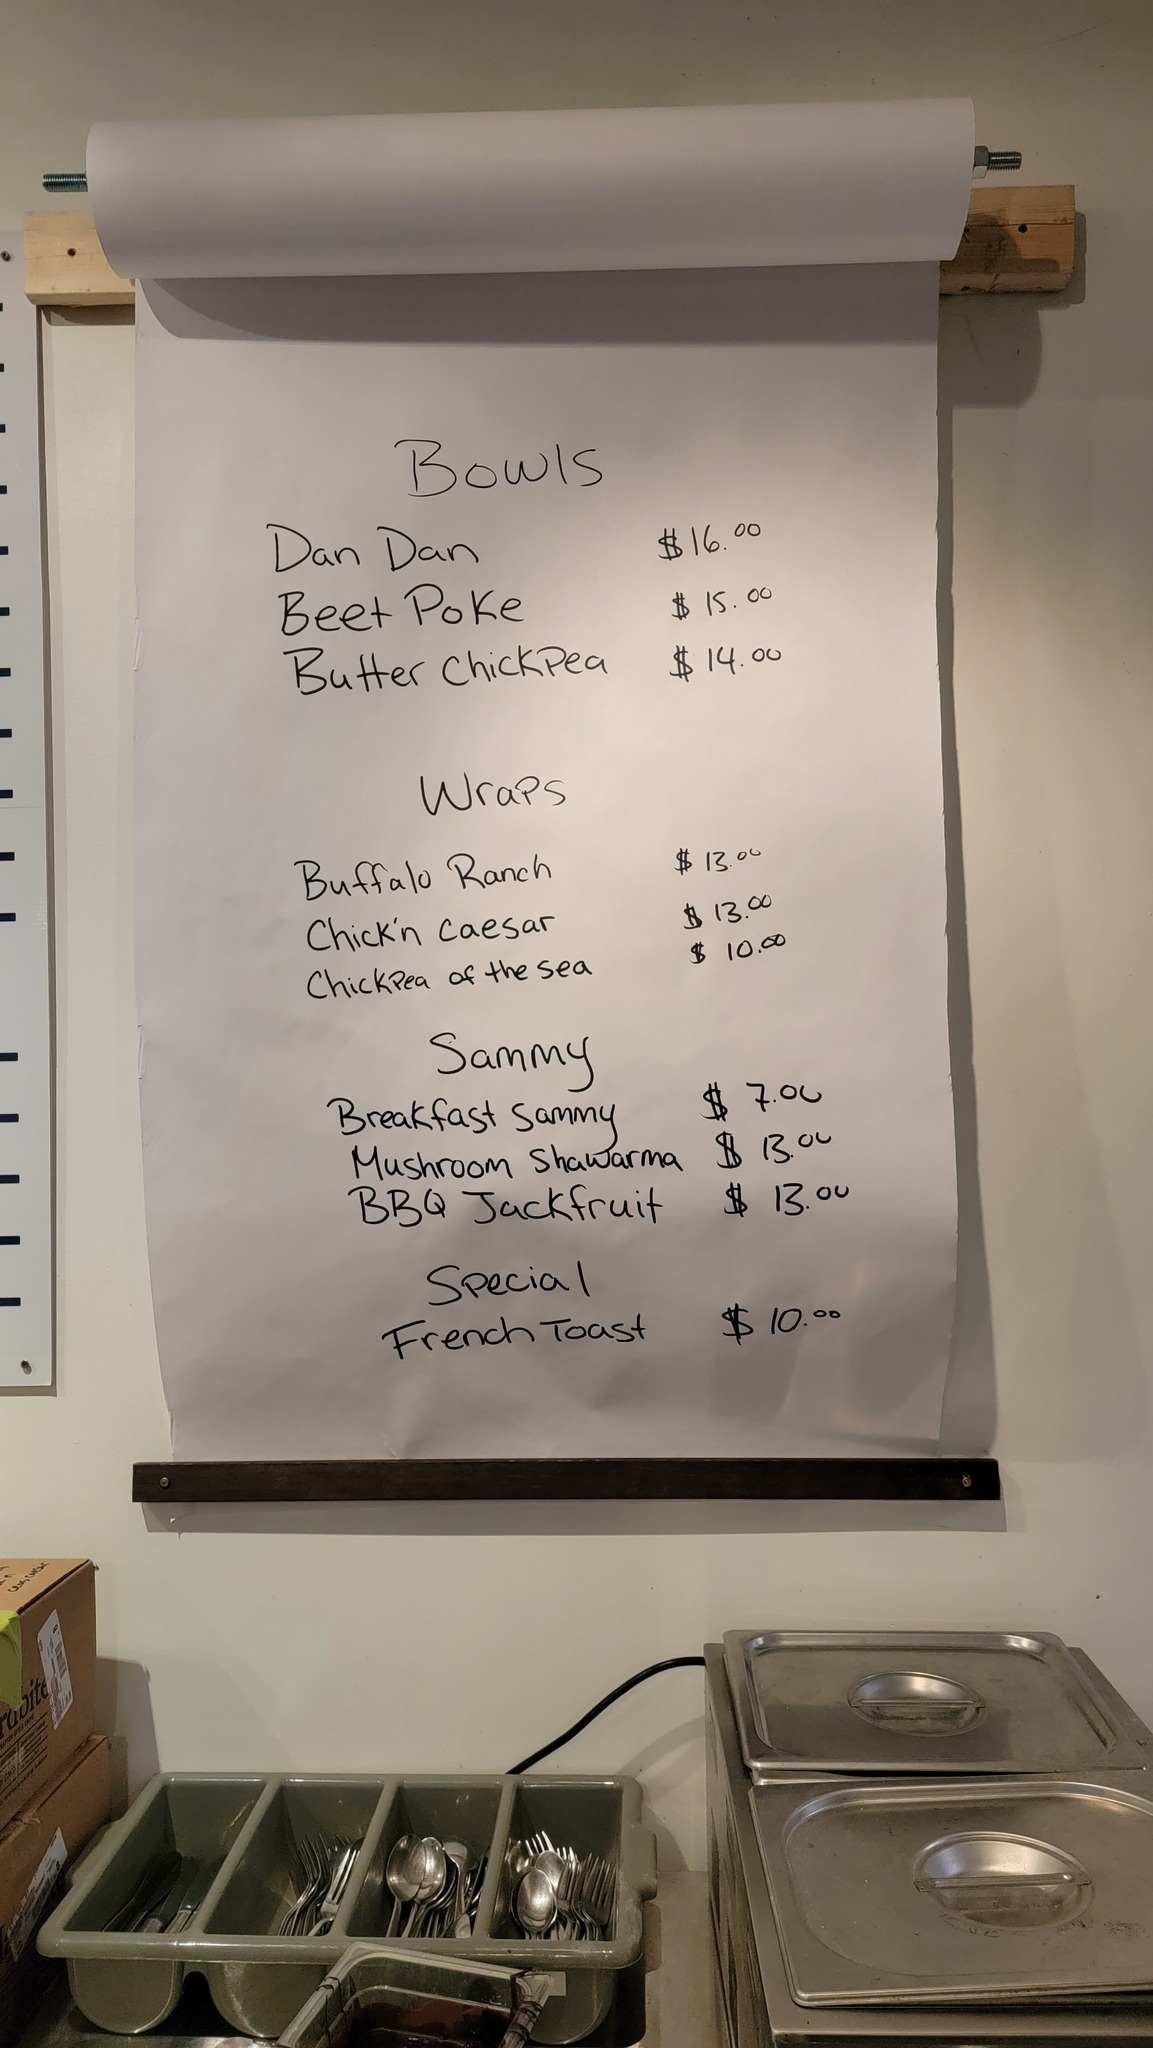 Bowls
Dan Dan $16.00
Beet Poke $15.00
Butter Chickpea $14.00
Wraps
Buffalo Ranch $13.00
Chick'n Caesar $13.00
Chickpea of the sea $10.00
Sammy
Breakfast Sammy $7.00
Mushroom Shawarma $13.00
BBQ Jackfruit $13.00
Special
French Toast $10.00